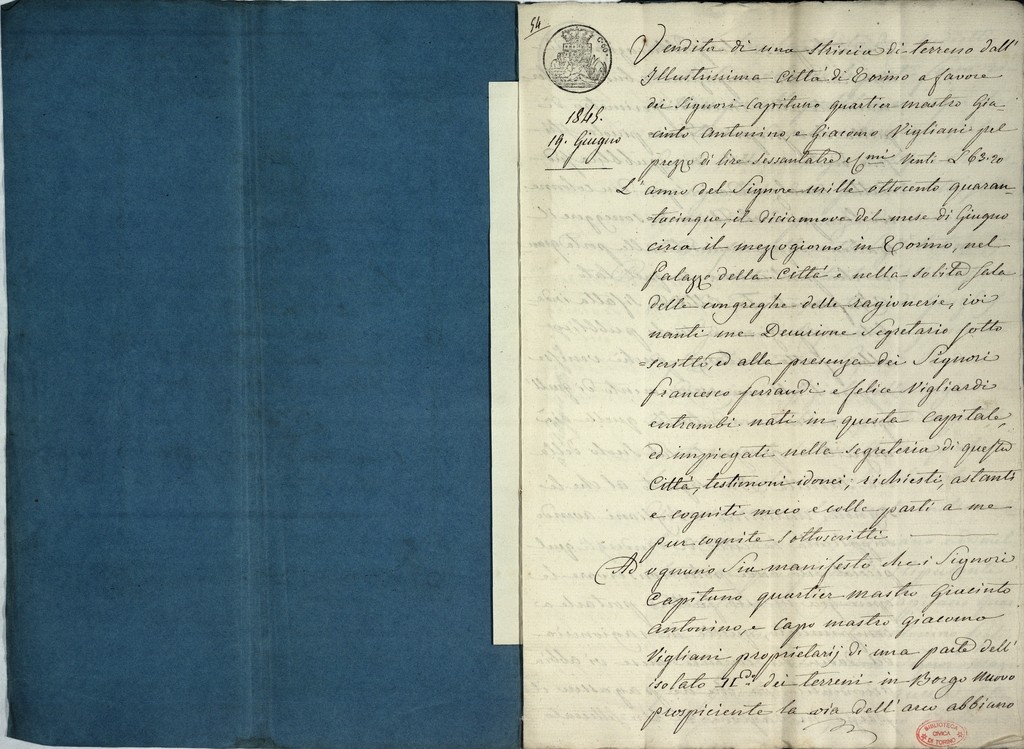 54
Vendita di una striscia di terreno dall'
Illustrissima Città di Torino a favore
dei Signori Capitano quartier mastro Gia-
cinto Antonino, e Giacomo Vigliani pel
prezzo di lire sessantatre e Cmi Venti - £ 63.20
1845.
19. Giugno
L'anno del Signore mille ottocento quaran-
tacinque, il diciannove del mese di Giugno
circa il mezzogiorno in Torino, nel
Palazzo della Città e nella solita sala
delle congreghe delle ragionerie, ivi
nanti me Decurione Segretario sotto
=scritto, ed alla presenza dei Signori
Francesco Ferrandi e Felice Vigliardi
entrambi nati in questa Capitale,
ed impiegati nella segreteria di questa
Città, testimoni idonei, richiesti, astanti
e cogniti meco e colle parti a me
pur cognite sottoscritti
Ad ognuno sia manifesto che i Signori
Capitano quartier mastro Giacinto
Antonino, e capo mastro Giacomo
Vigliani proprietarij di una parte dell'
isolato II do dei terreni in Borgo nuovo
prospiciente la via dell'arco abbiano
BIBLIOTECA
CIVICA
DI TORINO